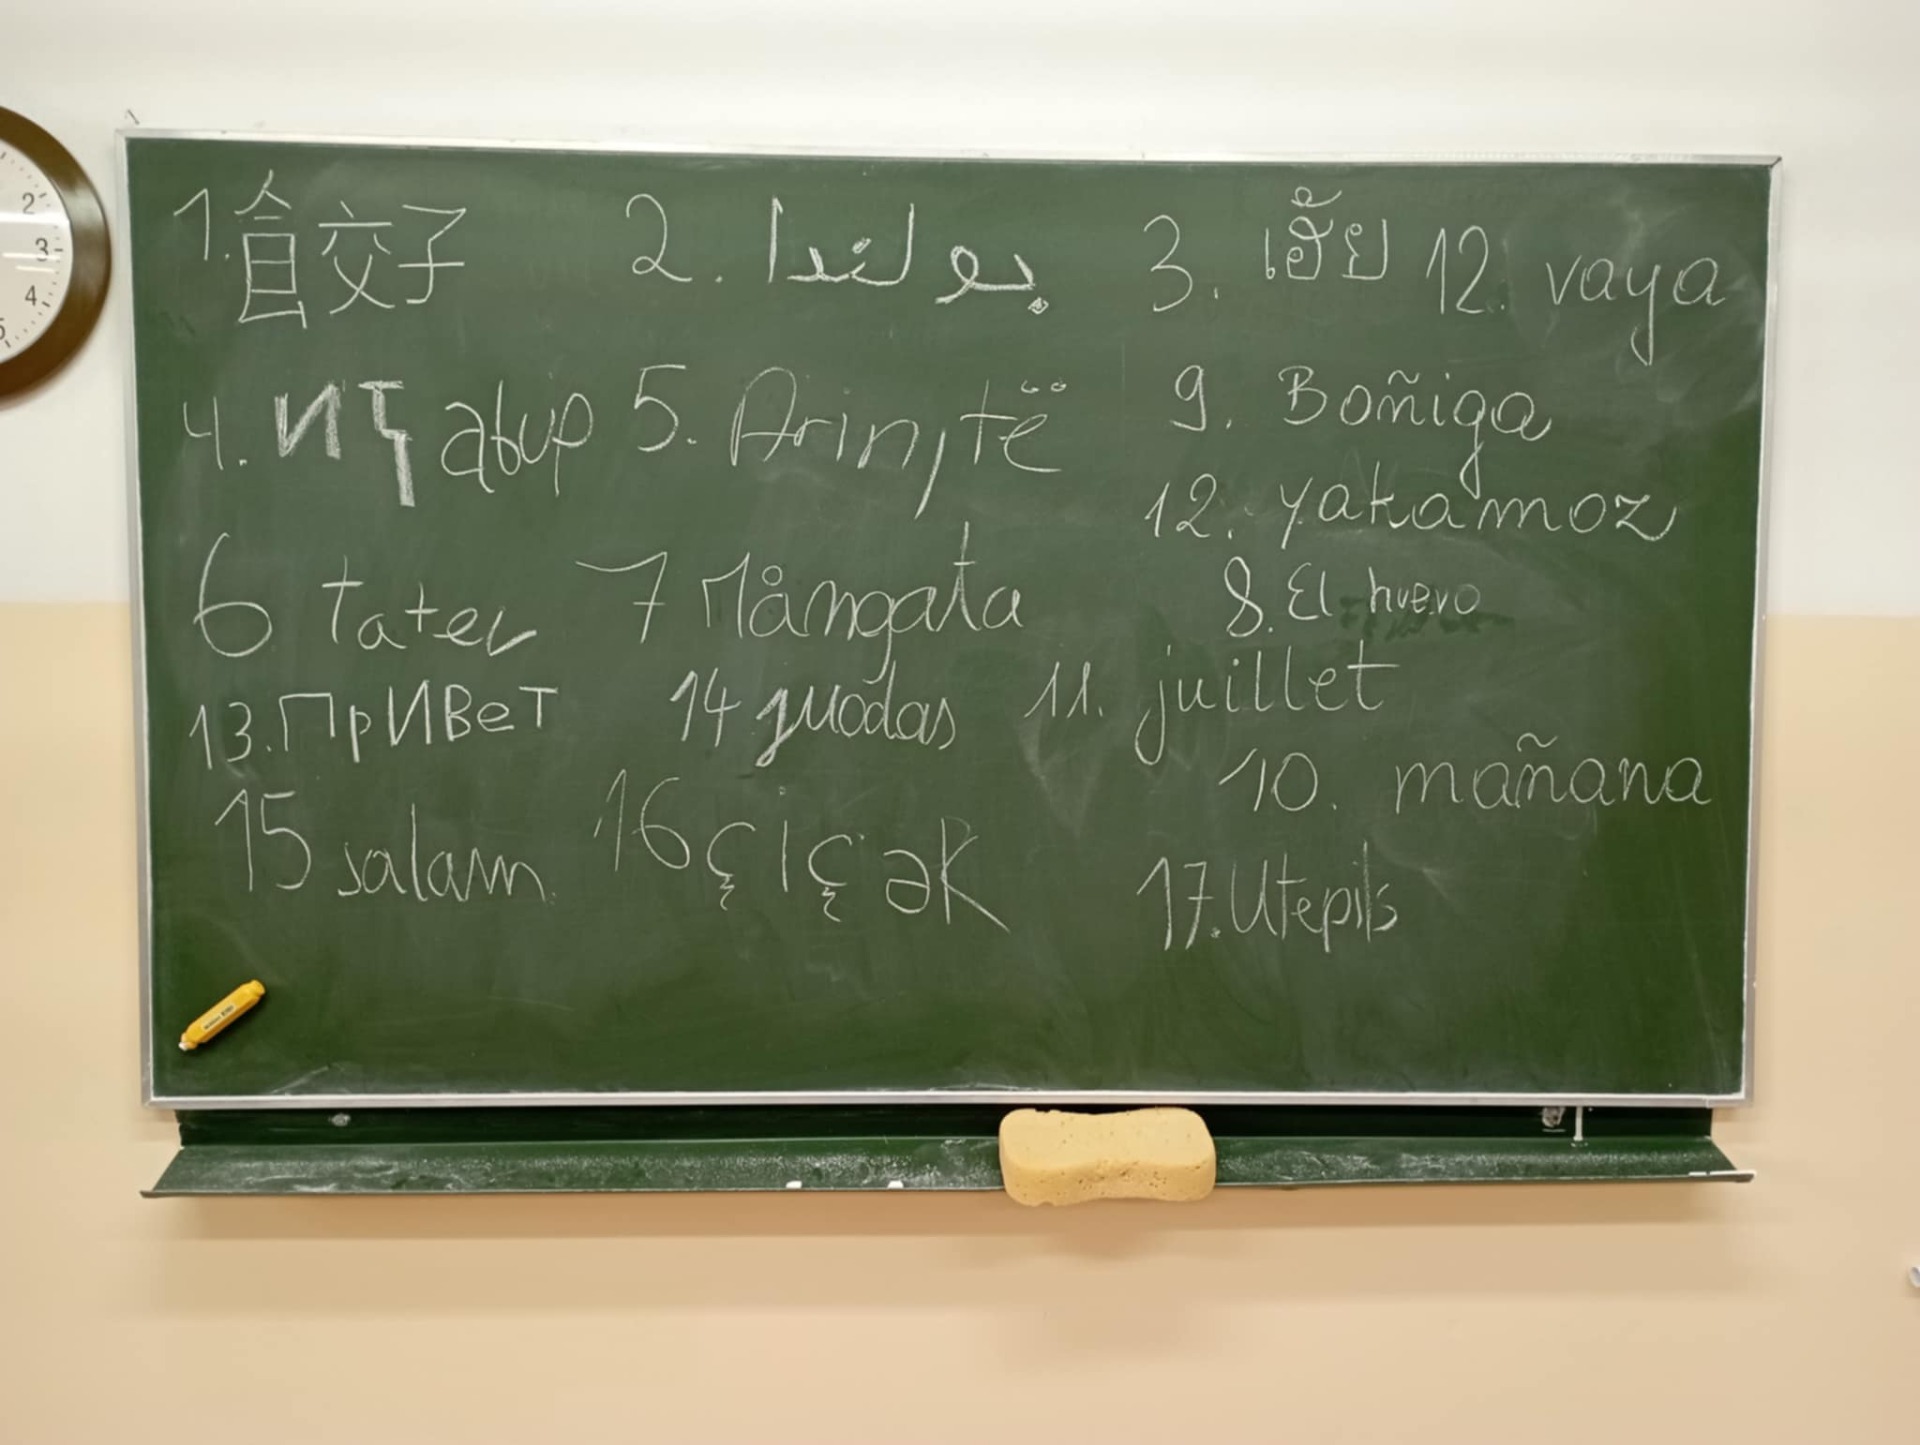 1. 食交子 2. پولندا 3. เฮ้ย 12. vaya
4. иҭабуп 5. Arinjtë 9. Boñiga
12. yakamoz
6 Tater 7 Mångata 8. El huevo
13. ПриВет 14 juodas 11. juillet
10. mañana
15 salam. 16 çiçək 17. Utepils
2
3
4
5